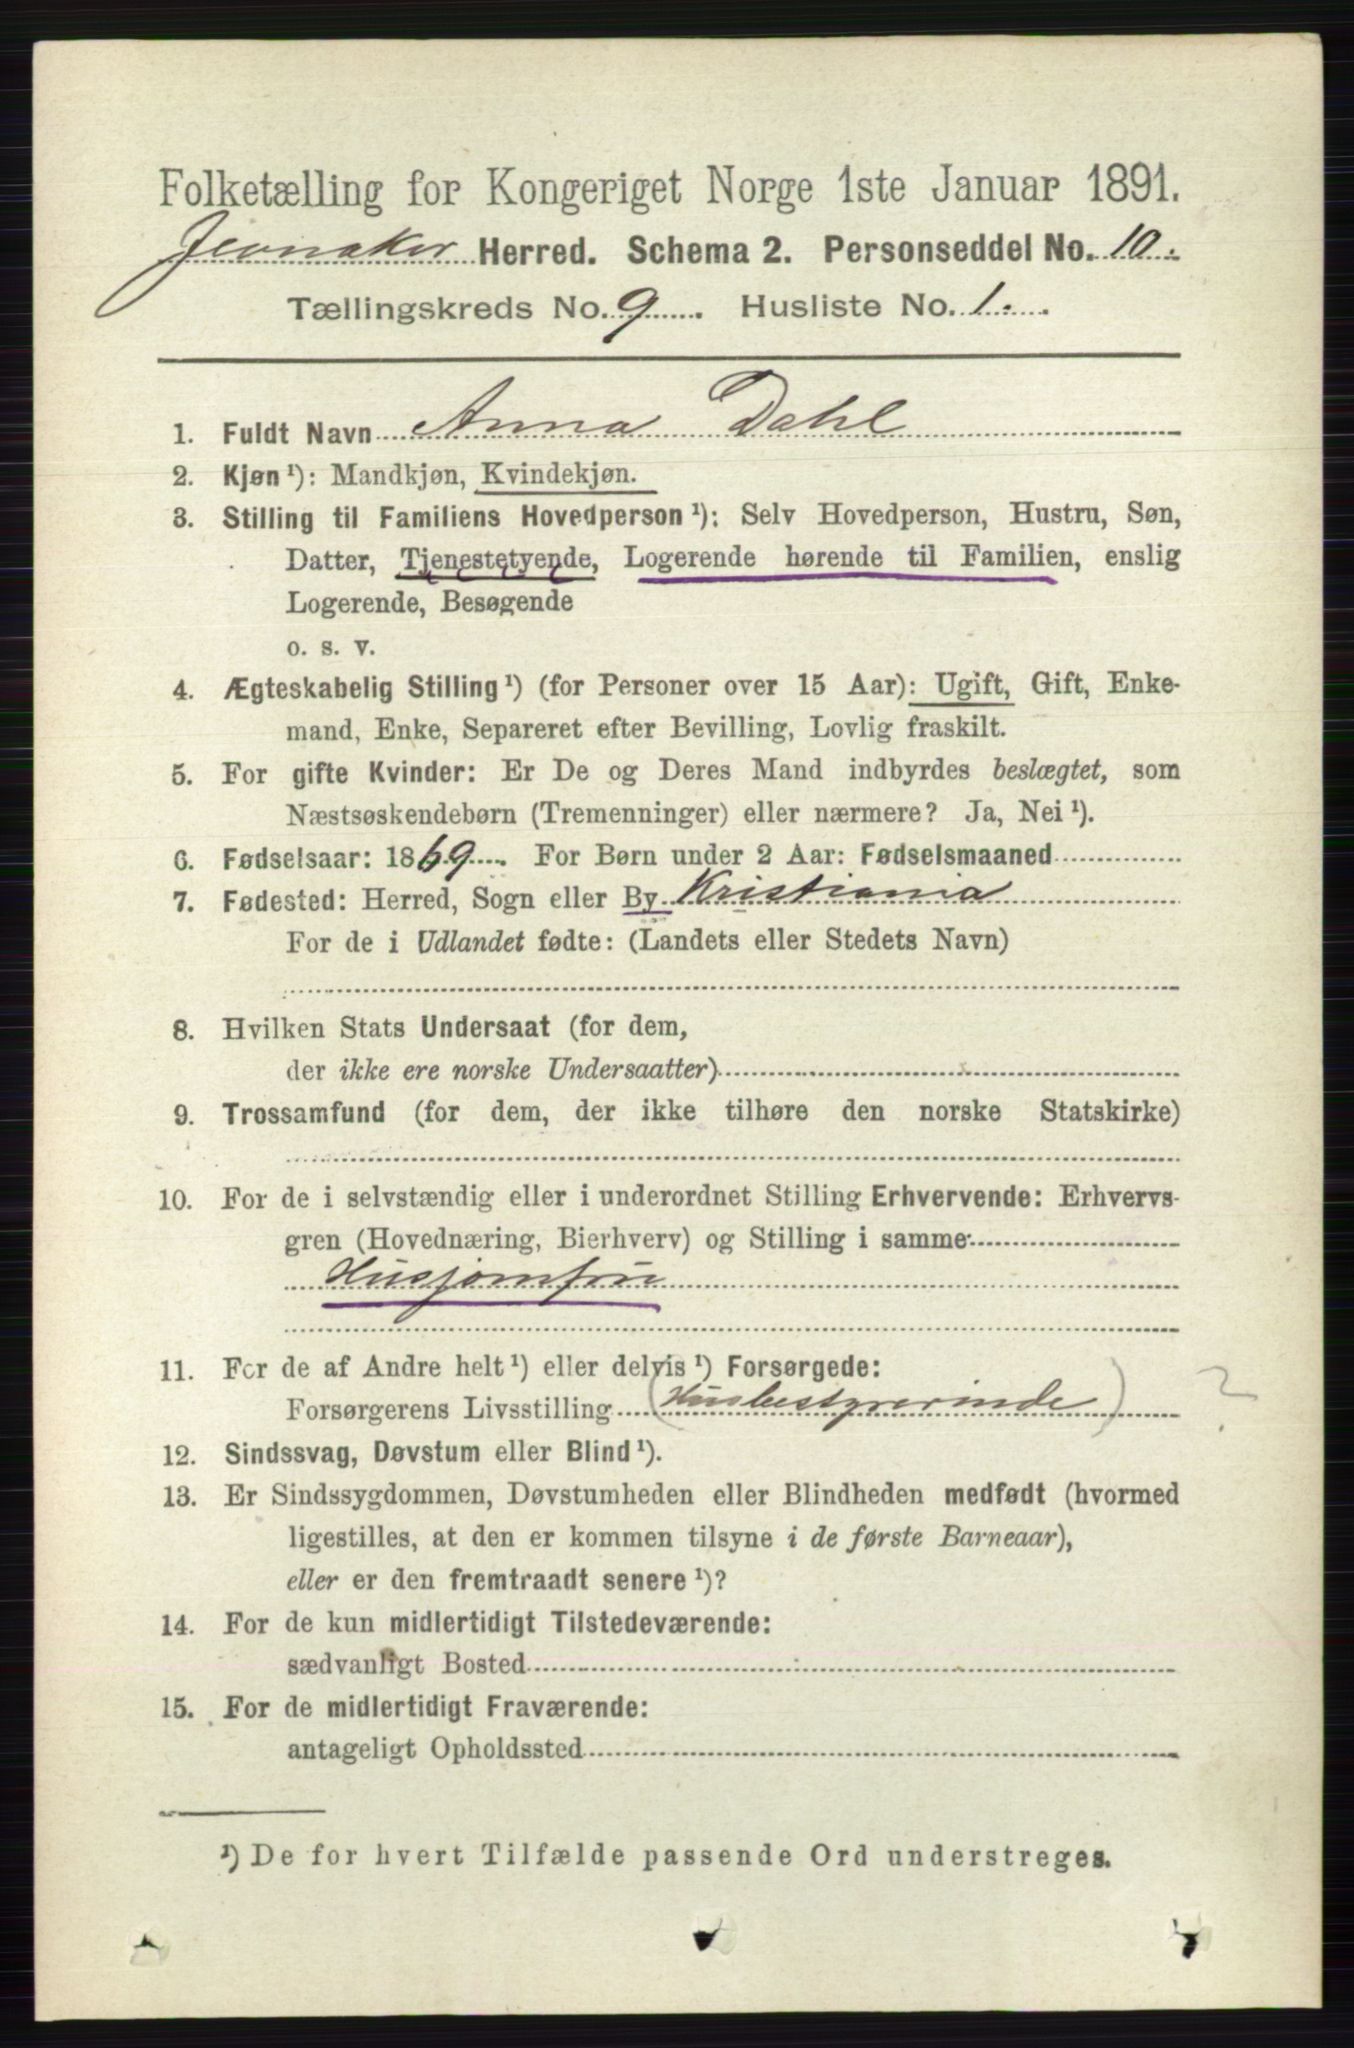 Folketælling for Kongeriget Norge 1ste Januar 1891.
Jevnaker Herred. Schema 2. Personseddel No. 10.
Tællingskreds No. 9. Husliste No. 1.
1. Fuldt Navn Anna Dahl
2. Kjøn ¹): Mandkjøn, Kvindekjøn.
3. Stilling til Familiens Hovedperson ¹): Selv Hovedperson, Hustru, Søn,
Datter, Tjenestetyende, Logerende hørende til Familien, enslig
Logerende, Besøgende
o. s. v.
4. Ægteskabelig Stilling ¹) (for Personer over 15 Aar): Ugift, Gift, Enke-
mand, Enke, Separeret efter Bevilling, Lovlig fraskilt.
5. For gifte Kvinder: Er De og Deres Mand indbyrdes beslægtet, som
Næstsøskendebørn (Tremenninger) eller nærmere? Ja, Nei ¹).
6. Fødselsaar: 1869. For Børn under 2 Aar: Fødselsmaaned
7. Fødested: Herred, Sogn eller By Kristiania
For de i Udlandet fødte: (Landets eller Stedets Navn)
8. Hvilken Stats Undersaat (for dem,
der ikke ere norske Undersaatter)
9. Trossamfund (for dem, der ikke tilhøre den norske Statskirke)
10. For de i selvstændig eller i underordnet Stilling Erhvervende: Erhvervs-
gren (Hovednæring, Bierhverv) og Stilling i samme
Husjomfru
11. For de af Andre helt ¹) eller delvis ¹) Forsørgede:
Forsørgerens Livsstilling (Husbestyrerinde) ?
12. Sindssvag, Døvstum eller Blind ¹).
13. Er Sindssygdommen, Døvstumheden eller Blindheden medfødt (hvormed
ligestilles, at den er kommen tilsyne i de første Barneaar),
eller er den fremtraadt senere ¹)?
14. For de kun midlertidigt Tilstedeværende:
sædvanligt Bosted
15. For de midlertidigt Fraværende:
antageligt Opholdssted
¹) De for hvert Tilfælde passende Ord understreges.